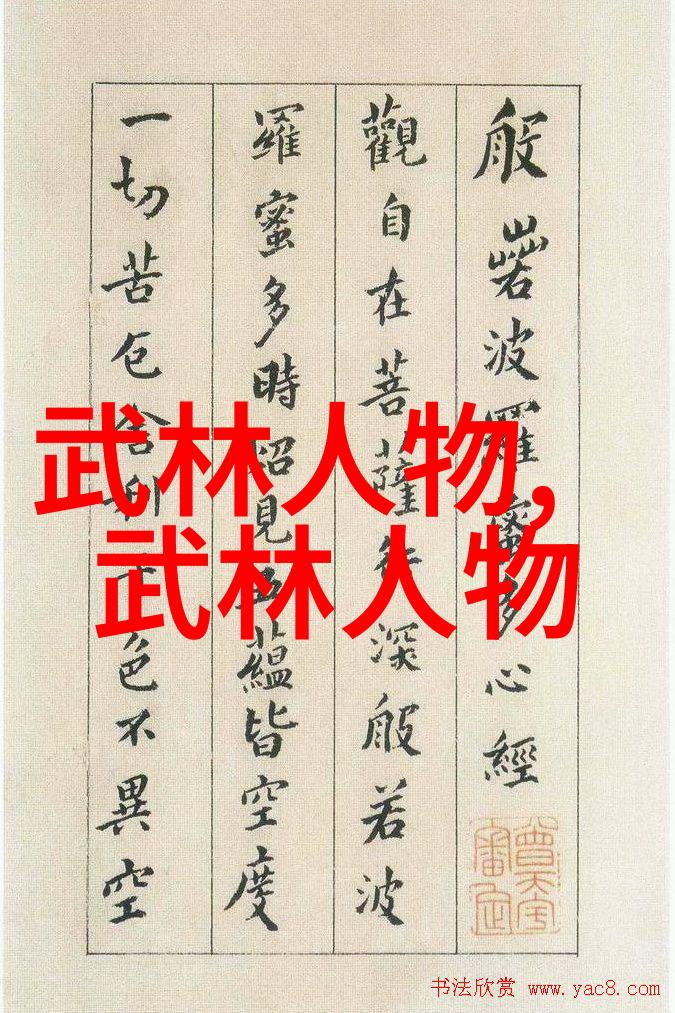 武林人物,
武林人物
般若波羅蜜多心經
觀自在菩薩行深般若波
羅蜜多時照見五蘊皆空度
一切苦厄舍利子色不異空
书法欣赏 www.yac8.com